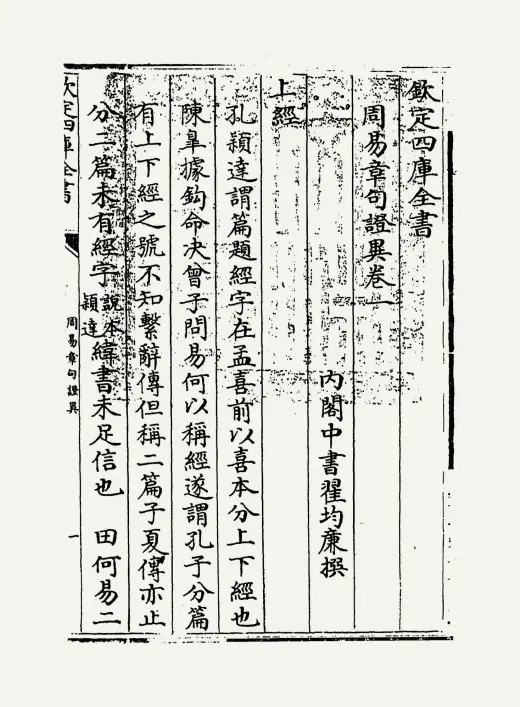 欽定四庫全書
周易章句證異卷一
内閣中書翟均廉撰
上經
孔穎達謂篇題經字在孟喜前以喜本分上下經也
陳臯據鈎命決曾子問易何以稱經遂謂孔子分篇
有上下經之號不知繫辭傳但稱二篇子夏傳亦止
分二篇未有經字說本穎達緯書未足信也 田何易二
欽定四庫全書
周易章句證異
一